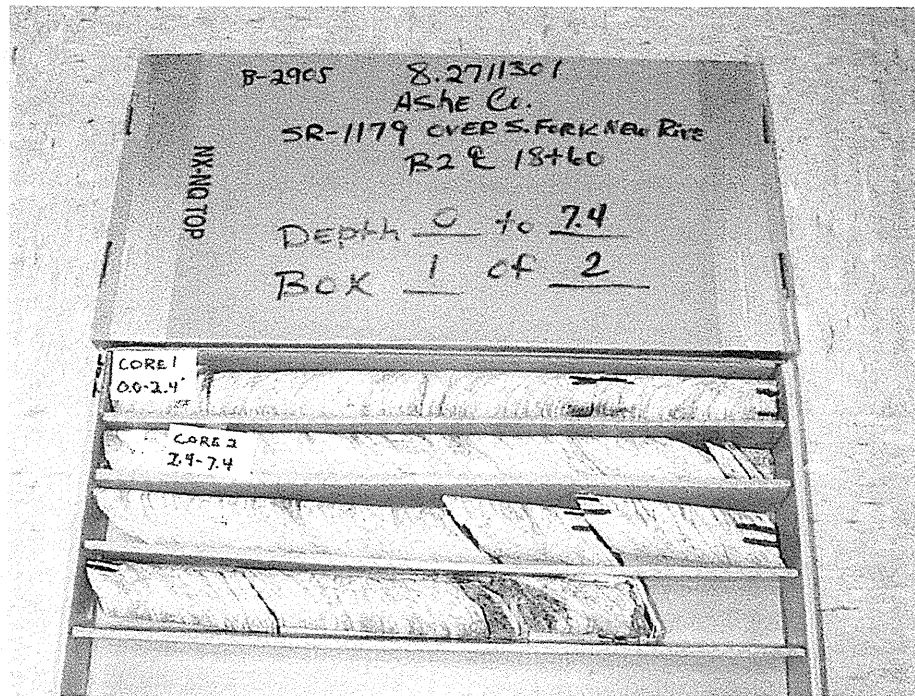 B-2905 8.2711301
AShE Co.
SR-1179 OVER S. FORK NEW Rive
B2 ℄ 18+60
NX-NQ TOP
DEpth 0 to 7.4
BOX 1 of 2
CORE 1
0.0-2.4'
CORE 2
2.4-7.4